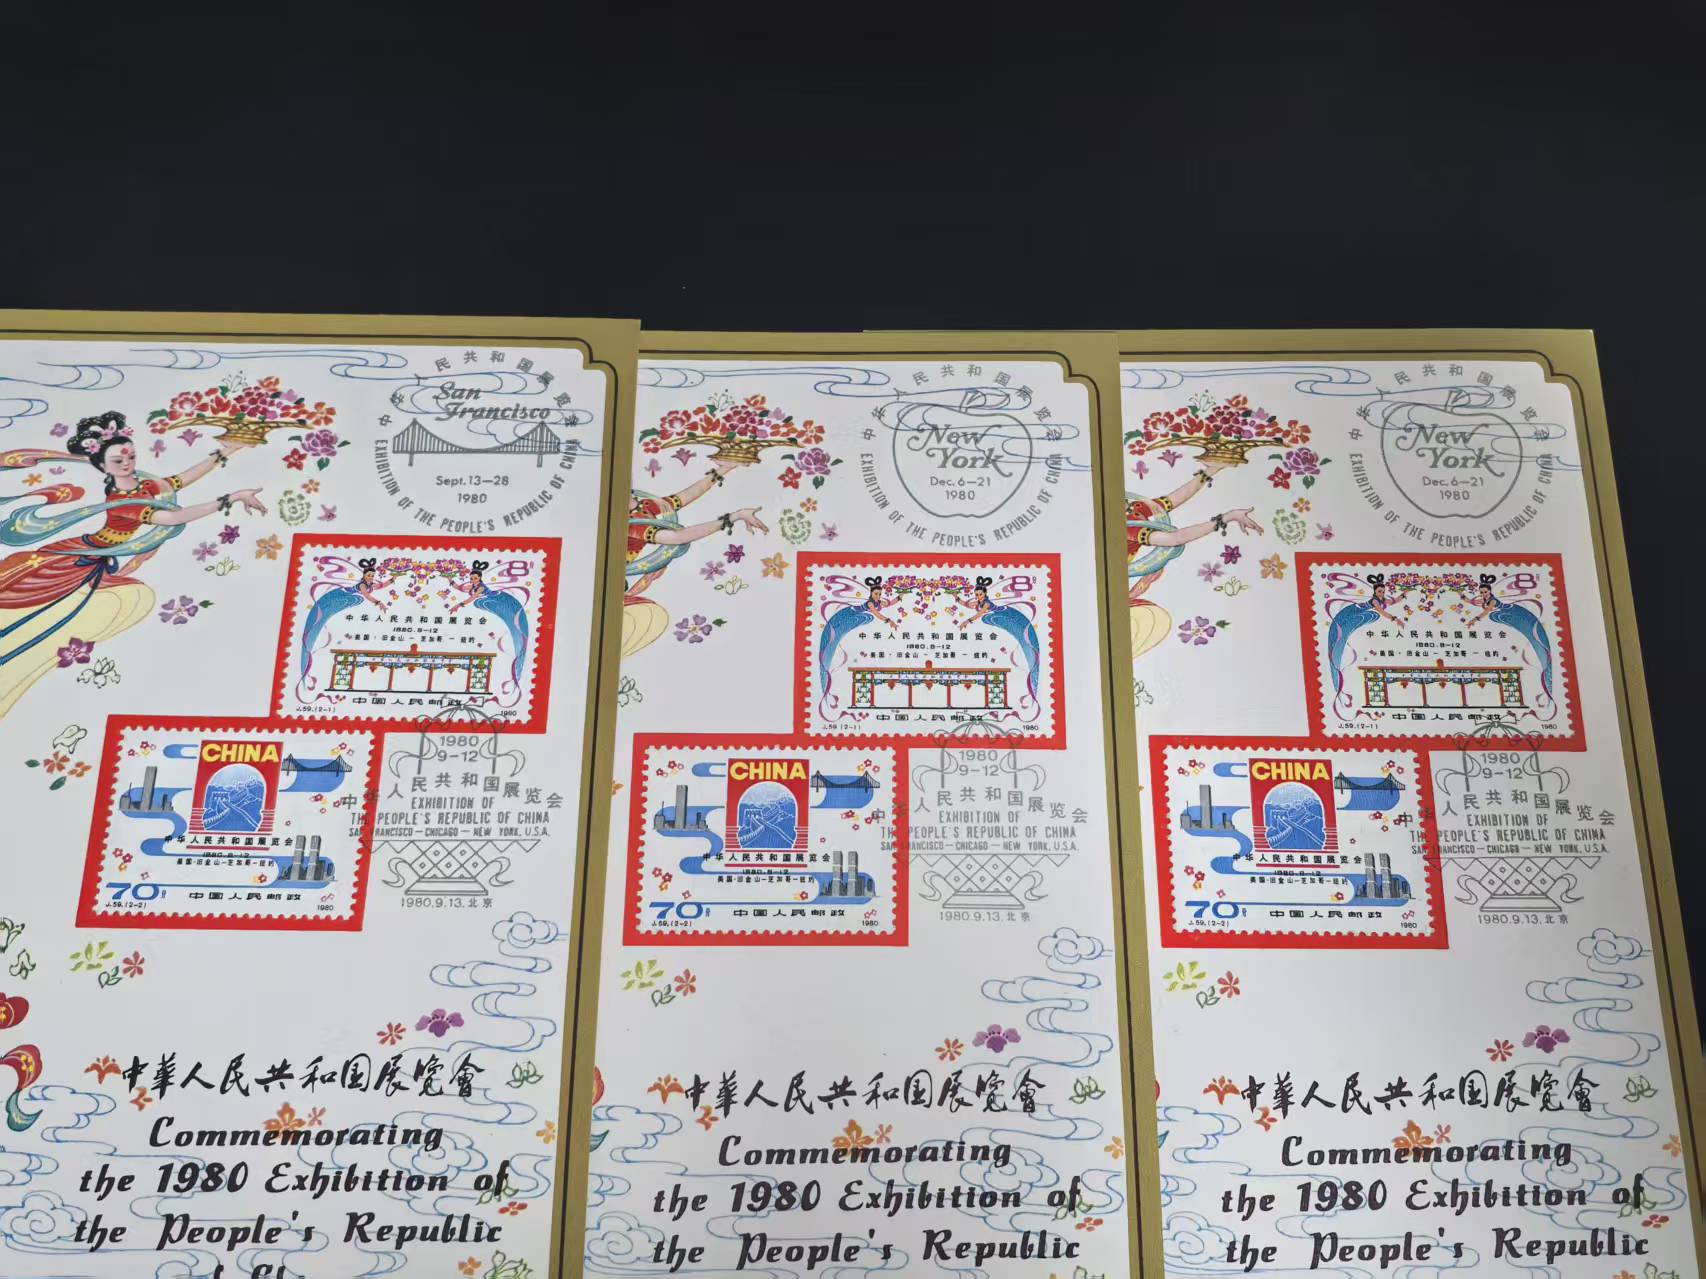 中华人民共和国展览会
San
Francisco
Sept. 13—28
1980
EXHIBITION OF THE PEOPLE'S REPUBLIC OF CHINA
8分
中华人民共和国展览会
1980.9-12
美国·旧金山—芝加哥—纽约
中国人民邮政
J.59.(2-1)
1980
CHINA
中华人民共和国展览会
1980.9-12
美国·旧金山—芝加哥—纽约
70分
中国人民邮政
J.59.(2-2)
1980
1980
9-12
中华人民共和国展览会
EXHIBITION OF
THE PEOPLE'S REPUBLIC OF CHINA
SAN FRANCISCO—CHICAGO—NEW YORK, U.S.A.
1980.9.13.北京
中華人民共和国展覽會
Commemorating
the 1980 Exhibition of
the People's Republic
中华人民共和国展览会
New
York
Dec. 6—21
1980
EXHIBITION OF THE PEOPLE'S REPUBLIC OF CHINA
8分
中华人民共和国展览会
1980.9-12
美国·旧金山—芝加哥—纽约
中国人民邮政
J.59.(2-1)
1980
CHINA
中华人民共和国展览会
1980.9-12
美国·旧金山—芝加哥—纽约
70分
中国人民邮政
J.59.(2-2)
1980
1980
9-12
中华人民共和国展览会
EXHIBITION OF
THE PEOPLE'S REPUBLIC OF CHINA
SAN FRANCISCO—CHICAGO—NEW YORK, U.S.A.
1980.9.13.北京
中華人民共和国展覽會
Commemorating
the 1980 Exhibition of
the People's Republic
中华人民共和国展览会
New
York
Dec. 6—21
1980
EXHIBITION OF THE PEOPLE'S REPUBLIC OF CHINA
8分
中华人民共和国展览会
1980.9-12
美国·旧金山—芝加哥—纽约
中国人民邮政
J.59.(2-1)
1980
CHINA
中华人民共和国展览会
1980.9-12
美国·旧金山—芝加哥—纽约
70分
中国人民邮政
J.59.(2-2)
1980
1980
9-12
中华人民共和国展览会
EXHIBITION OF
THE PEOPLE'S REPUBLIC OF CHINA
SAN FRANCISCO—CHICAGO—NEW YORK, U.S.A.
1980.9.13.北京
中華人民共和国展覽會
Commemorating
the 1980 Exhibition of
the People's Republic